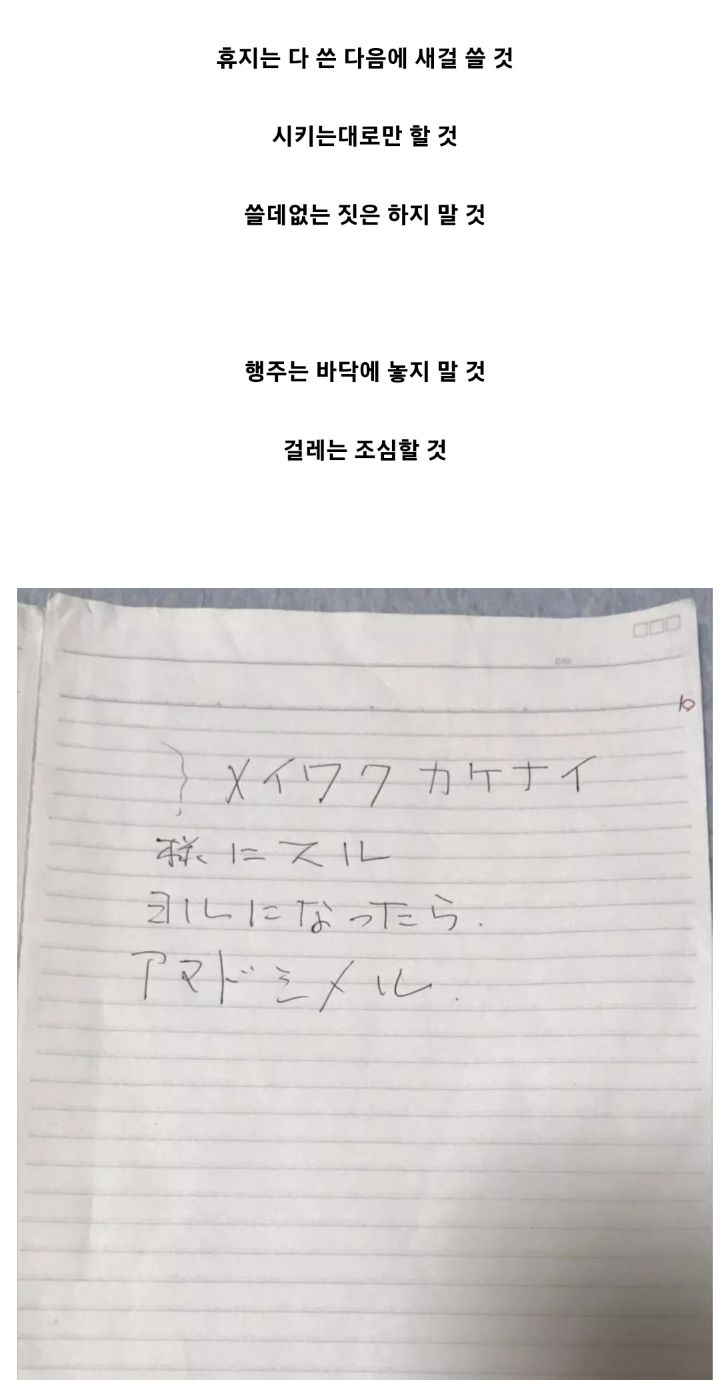 휴지는 다 쓴 다음에 새걸 쓸 것
시키는대로만 할 것
쓸데없는 짓은 하지 말 것
행주는 바닥에 놓지 말 것
걸레는 조심할 것
メイワクカケナイ
様にスル
ヨルになったら.
アマドシメル.